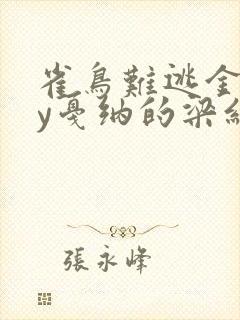 雀鳥難逃金
y戛纳的梁纟
張永峰